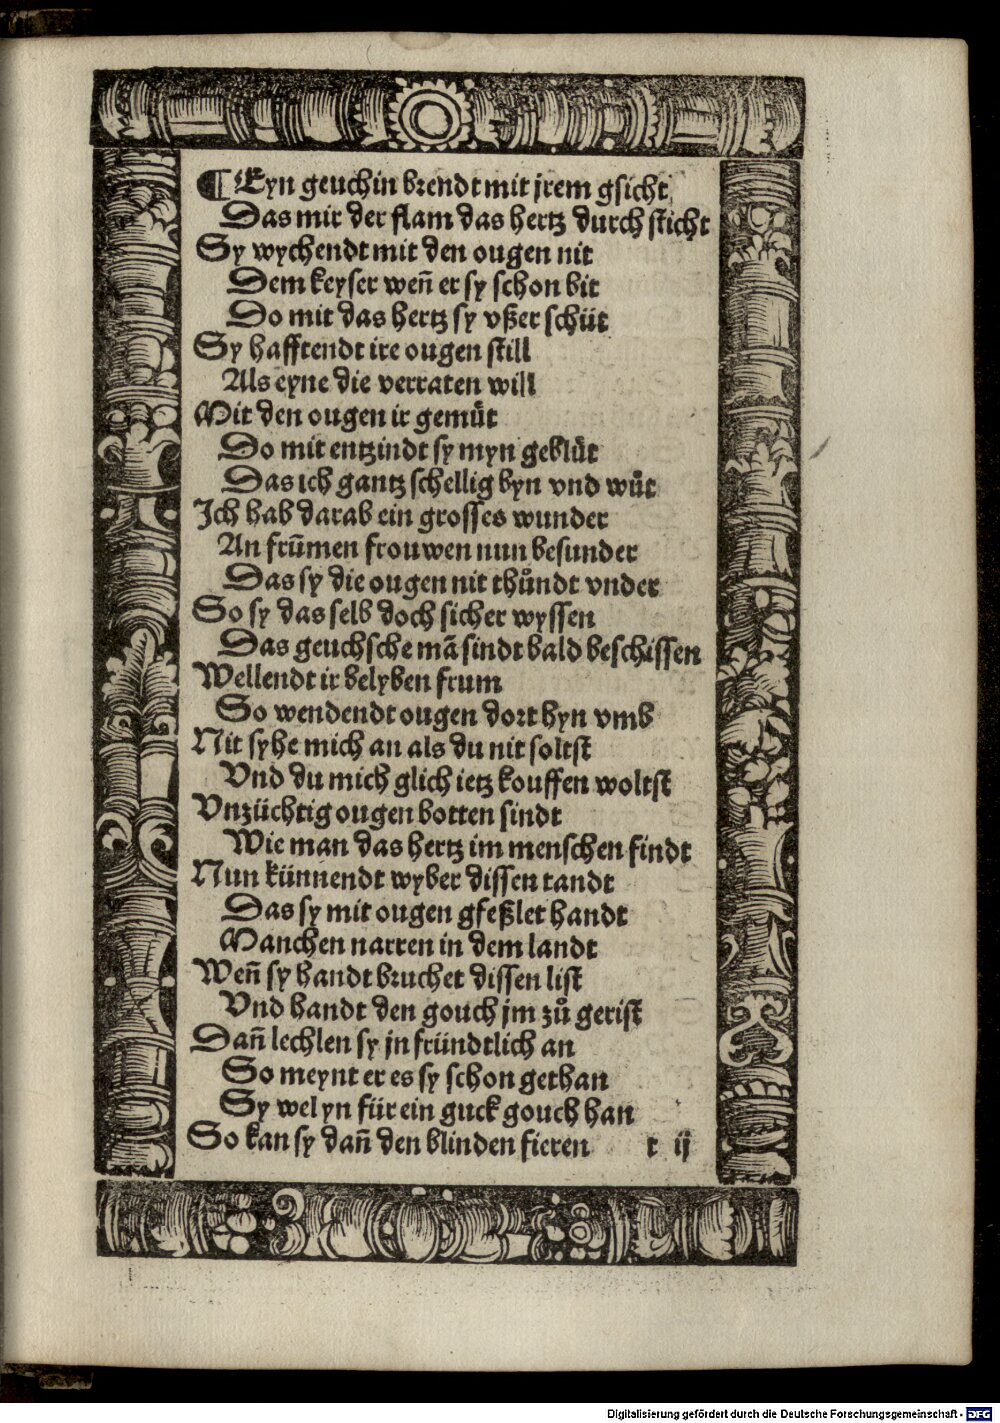 ¶ Eyn geuchin brendt mit jrem gsicht
Das mir der flam das hertz durch sticht
Sy wychendt mit den ougen nit
Dem keyser weñ er sy schon bit
Do mit das hertz sy vßer schüt
Sy hafftendt ire ougen still
Als eyne die verraten will
Mit den ougen ir gemuͤt
Do mit entzindt sy myn gebluͤt
Das ich gantz schellig byn vnd wuͤt
Ich hab darab ein grosses wunder
An frum̃en frouwen nun besunder
Das sy die ougen nit thuͦndt vnder
So sy das selb doch sicher wyssen
Das geuchsche mã sindt bald beschissen
Wellendt ir belyben frum
So wendendt ougen dort hyn vmb
Nit syhe mich an als du nit soltst
Vnd du mich glich ietz kouffen woltst
Vnzüchtig ougen botten sindt
Wie man das hertz im menschen findt
Nun künnendt wyber dissen tandt
Das sy mit ougen gfeßlet handt
Manchen narren in dem landt
Weñ sy handt bruchet dissen list
Vnd handt den gouch jm zuͦ gerist
Dañ lechlen sy jn fründtlich an
So meynt er es sy schon gethan
Sy wel yn für ein guck gouch han
So kan sy dañ den blinden fieren r ij
Digitalisierung gefördert durch die Deutsche Forschungsgemeinschaft - DFG